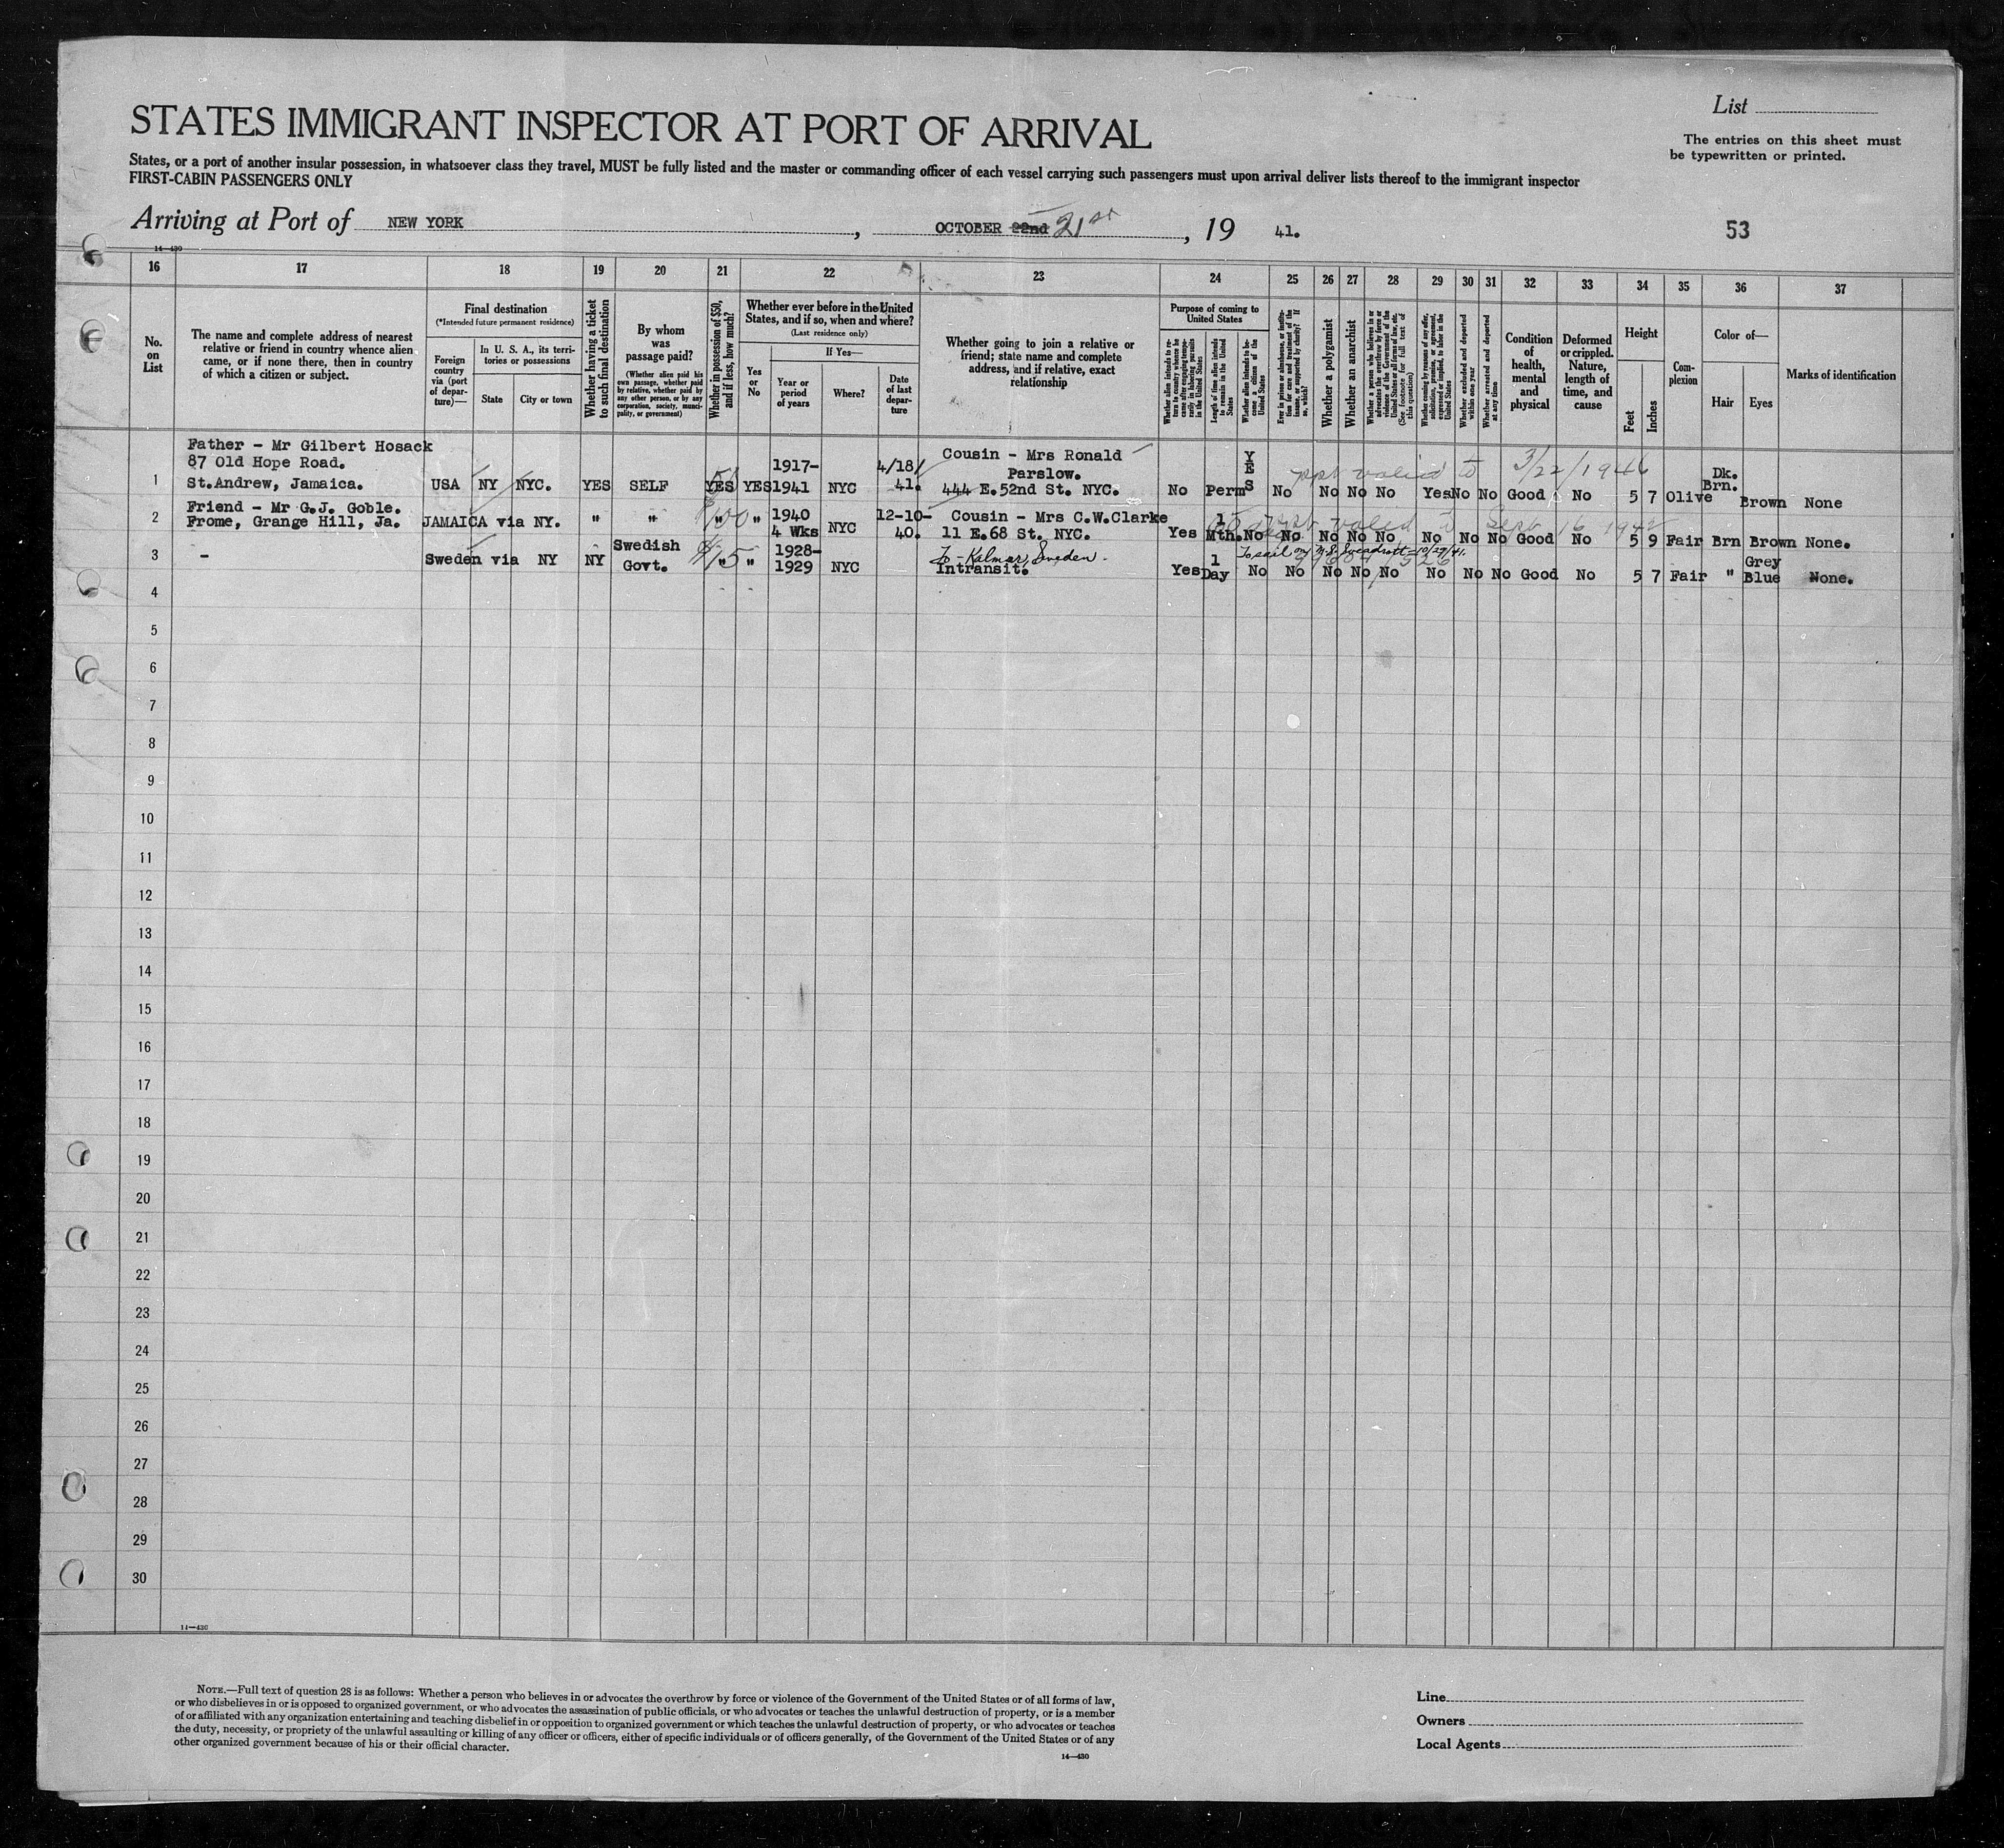 List
STATES IMMIGRANT INSPECTOR AT PORT OF ARRIVAL
The entries on this sheet must
be typewritten or printed.
States, or a port of another insular possession, in whatsoever class they travel, MUST be fully listed and the master or commanding officer of each vessel carrying such passengers must upon arrival deliver lists thereof to the immigrant inspector
FIRST-CABIN PASSENGERS ONLY
Arriving at Port of NEW YORK, OCTOBER 22nd 21st, 19 41.
53
14—430
16 17 18 19 20 21 22 23 24 25 26 27 28 29 30 31 32 33 34 35 36 37
No.
on
List
The name and complete address of nearest
relative or friend in country whence alien
came, or if none there, then in country
of which a citizen or subject.
Final destination
(*Intended future permanent residence)
Foreign
country
via (port
of depar-
ture)—
In U. S. A., its terri-
tories or possessions
State
City or town
Whether having a ticket
to such final destination
By whom
was
passage paid?
(Whether alien paid his
own passage, whether paid
by relative, whether paid by
any other person, or by any
corporation, society, munici-
pality, or government)
Whether in possession of $50,
and if less, how much?
Whether ever before in the United
States, and if so, when and where?
(Last residence only)
Yes
or
No
If Yes—
Year or
period
of years
Where?
Date
of last
depar-
ture
Whether going to join a relative or
friend; state name and complete
address, and if relative, exact
relationship
Purpose of coming to
United States
Whether alien intends to re-
turn to country whence he
came after engaging tempo-
rarily in laboring pursuits
in the United States
Length of time alien intends
to remain in the United
States
Whether alien intends to be-
come a citizen of the
United States
Ever in prison or almshouse, or institu-
tion for care and treatment of the
insane, or supported by charity? If
so, which?
Whether a polygamist
Whether an anarchist
Whether a person who believes in or
advocates the overthrow by force or
violence of the Government of the
United States or all forms of law, etc.
(See footnote for full text of
this question)
Whether coming by reasons of any offer,
solicitation, promise, or agreement,
expressed or implied, to labor in the
United States
Whether excluded and deported
within one year
Whether arrested and deported
at any time
Condition
of
health,
mental
and
physical
Deformed
or crippled.
Nature,
length of
time, and
cause
Height
Feet
Inches
Com-
plexion
Color of—
Hair
Eyes
Marks of identification
Father - Mr Gilbert Hosack
87 Old Hope Road.
1 St.Andrew, Jamaica. USA NY NYC. YES SELF YES YES 1917-1941 NYC 4/18/41. Cousin - Mrs Ronald Parslow. 444 E.52nd St. NYC. No Perm YES No No No No Yes No No Good No 5 7 Olive Dk. Brn. Brown None
ppt valid to 3/22/1946
Friend - Mr G.J. Goble.
2 Frome, Grange Hill, Ja. JAMAICA via NY. " " 100 " " 1940 4 Wks NYC 12-10-40. Cousin - Mrs C.W.Clarke 11 E.68 St. NYC. Yes 1 Mth. No No No No No No No No Good No 5 9 Fair Brn Brown None.
valid to Sept 16 1942
3 - Sweden via NY NY Swedish Govt. $75 " " 1928-1929 NYC To - Kalmar, Sweden. Intransit. Yes 1 Day No No No No No No No No Good No 5 7 Fair " Grey Blue None.
4
5
6
7
8
9
10
11
12
13
14
15
16
17
18
19
20
21
22
23
24
25
26
27
28
29
30
14—430
NOTE.—Full text of question 28 is as follows: Whether a person who believes in or advocates the overthrow by force or violence of the Government of the United States or of all forms of law,
or who disbelieves in or is opposed to organized government, or who advocates the assassination of public officials, or who advocates or teaches the unlawful destruction of property, or is a member
of or affiliated with any organization entertaining and teaching disbelief in or opposition to organized government or which teaches the unlawful destruction of property, or who advocates or teaches
the duty, necessity, or propriety of the unlawful assaulting or killing of any officer or officers, either of specific individuals or of officers generally, of the Government of the United States or of any
other organized government because of his or their official character.
14—430
Line
Owners
Local Agents